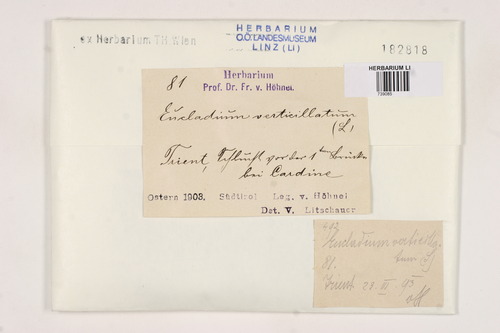 ex Herbarium TH Wien
HERBARIUM
O.Ö. LANDESMUSEUM
LINZ (LI)
182818
HERBARIUM LI
739085
81
Herbarium
Prof. Dr. Fr. v. Höhnel.
Eucladium verticillatum
(L)
Trient, Schlucht vor der 1ten Brücke
bei Cardine
Ostern 1903, Südtirol Leg. v. Höhnel
Det. V. Litschauer
Eucladium verticilla-
tum (L)
81.
Trient 28. III.